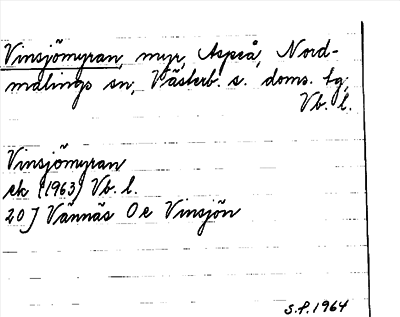 Vinsjömyran, myr, Aspeå, Nord-
malings sn, Västerb. s. doms. tg,
Vb. l.
Vinsjömyran
ek (1963) Vb. l.
20 J Vännäs Oc Vinsjön
S.P. 1964